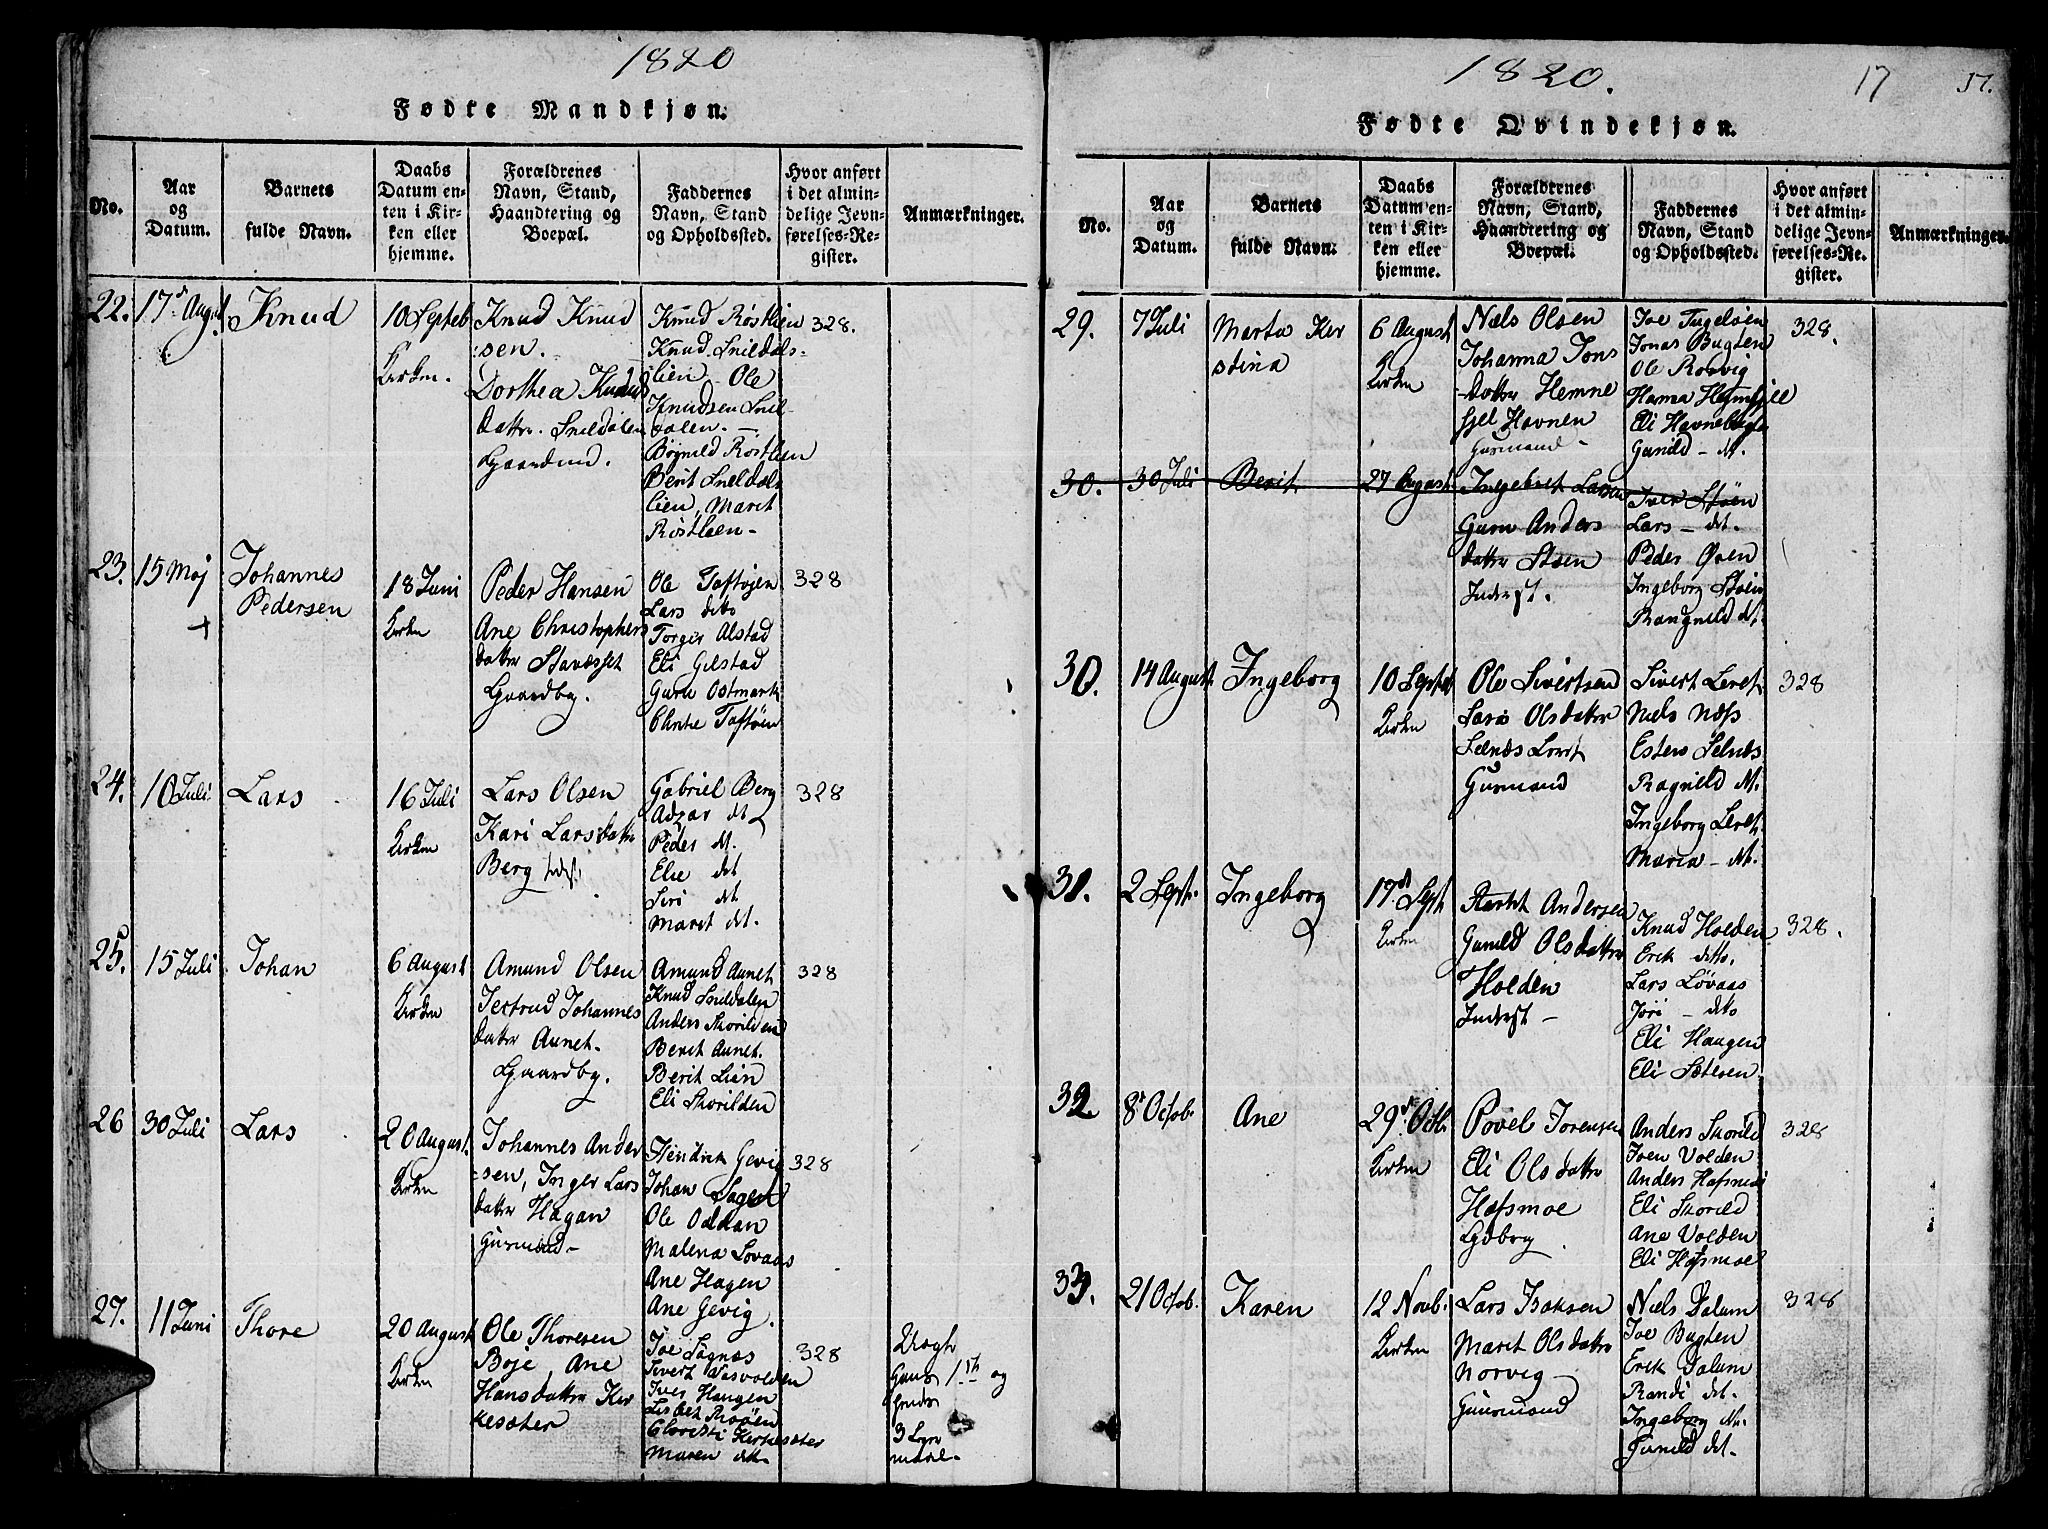 1820
Fødte Mandkjøn.
No.
Aar
og
Datum.
Barnets
fulde Navn.
Daabs
Datum en-
ten i Kir-
ken eller
hjemme.
Forældrenes
Navn, Stand,
Haandtering og
Boepæl.
Faddernes
Navn, Stand
og Opholdssted.
Hvor anført
i det almin-
delige Jevn-
førelses-Re-
gister.
Anmærkninger.
22.
17 August
Knud
10 Septeb
Kirken.
Knud Knud
sen.
Dorthea Knuds
datter. Snildalen
Gaardmd.
Knud Røstlien
Knud Snildals-
lien Ole
Knudsen Snil-
dalen.
Bøgnild Røstlien
Berit Snildals
lien, Marit
Røstlien
328.
23.
15 Maj
+
Johannes
Pedersen
18 Juni
Kirken
Peder Hansen
Ane Christophers
datter Stavæsset
Gaardbg.
Ole Toftøjen
Lars ditto
Torger Alstad
Eli Gilstad
Guru Ostmark
Chirte Toftøien
328
24.
10 Juli
Lars
16 Juli
Kirken
Lars Olsen
Kari Larsdatter
Berg Indst.
Gabriel Berg
Adzar dt
Peder dt.
Elie det
Siri dt
Maret dt.
328
25.
15 Juli
Johan
6 August
Kirken
Amund Olsen
Jertrud Johannes
datter Aunet.
Gaardbg.
Amund Aunet
Knud Snildalen
Anders Skorilden
Berit Aunet.
Berit Lien
Eli Skorilden
328
26
30 Juli
Lars
20 August.
Kirken
Johannes Ander
sen, Inger Lars
datter Hagan
Gusmand
Hendrik Gevig
Johan
Ole Oddan
Malena Lovaas
Ane Hagen
Ane Gevig.
328
27.
11 Juni
Thore
20 August
Kirken
Ole Thoresen
Boje Ane
Hansdatter Kir
kesæter
Joe Sagnæs
Sivert Vasvolden
Iver Haugen
Lisbet Moøen
Christi Kirkesæter
Maren det
328
1 og
3
1820.
17
17.
Fødte Qvindekjøn.
No.
Aar
og
Datum.
Barnets
fulde Navn.
Daabs
Datum en-
ten i Kir-
ken eller
hjemme.
Forældrenes
Navn, Stand,
Haandtering og
Boepæl.
Faddernes
Navn, Stand
og Opholdssted.
Hvor anført
i det almin-
delige Jevn-
førelses-Re-
gister.
Anmærkninger.
29.
7 Juli
Marta Ker
stina
6 August
Kirken
Næls Olsen
Johanna Jons
datter Hemne
fjel Havnen
Gusmand
Joe Ingelsøen
Jonas Bugten
Ole Rorvig
Hanna Hemfjell
Eli Havneberge
Gunild dt.
328.
30.
30 Juli
Berit
27 August
Ingebret Larsen
Guru Anders
datter Støen
Inderst.
Iver Støen
Lars det.
Peder Øien
Ingeborg Støen
Rangnild dt.
30.
14 August
Ingeborg
10 Septe
Kirken
Ole Sivertsen
Lars Olsdatter
Selnæs Leret
Gusmand
Sivert Leret
Niels Næss
Esten Selnæs
Ragnild dt.
Ingeborg Leret
Maria dt.
328
31.
2 Sept.
Ingeborg
17 Sept
Kirken
Andersen
Gunild Olsdatter
Holden
Inderst
Knud Holden
Erik ditto.
Lars Løvaas
Jøri ditto
Eli Haugen
Eli Sætesen
328.
32.
8 Octob.
Ane
29 Octb.
Kirken
Povel Jorensen
Eli Olsdatter
Hofsmoe
Gdbrg.
Anders Skorild
Joen Volden
Anders Hofsmoe
Eli Skorild
Ane Volden
Eli Hofsmoe
328
33.
21 Octob.
Karen
12 Novb.
Kirken
Lars Isaksen
Marit Olsdatter
Norvig
Guusmand
Niels Dalum
Joe Bugten
Erik Dalum
Randi det.
Ingeborg dt.
Gunild det.
328